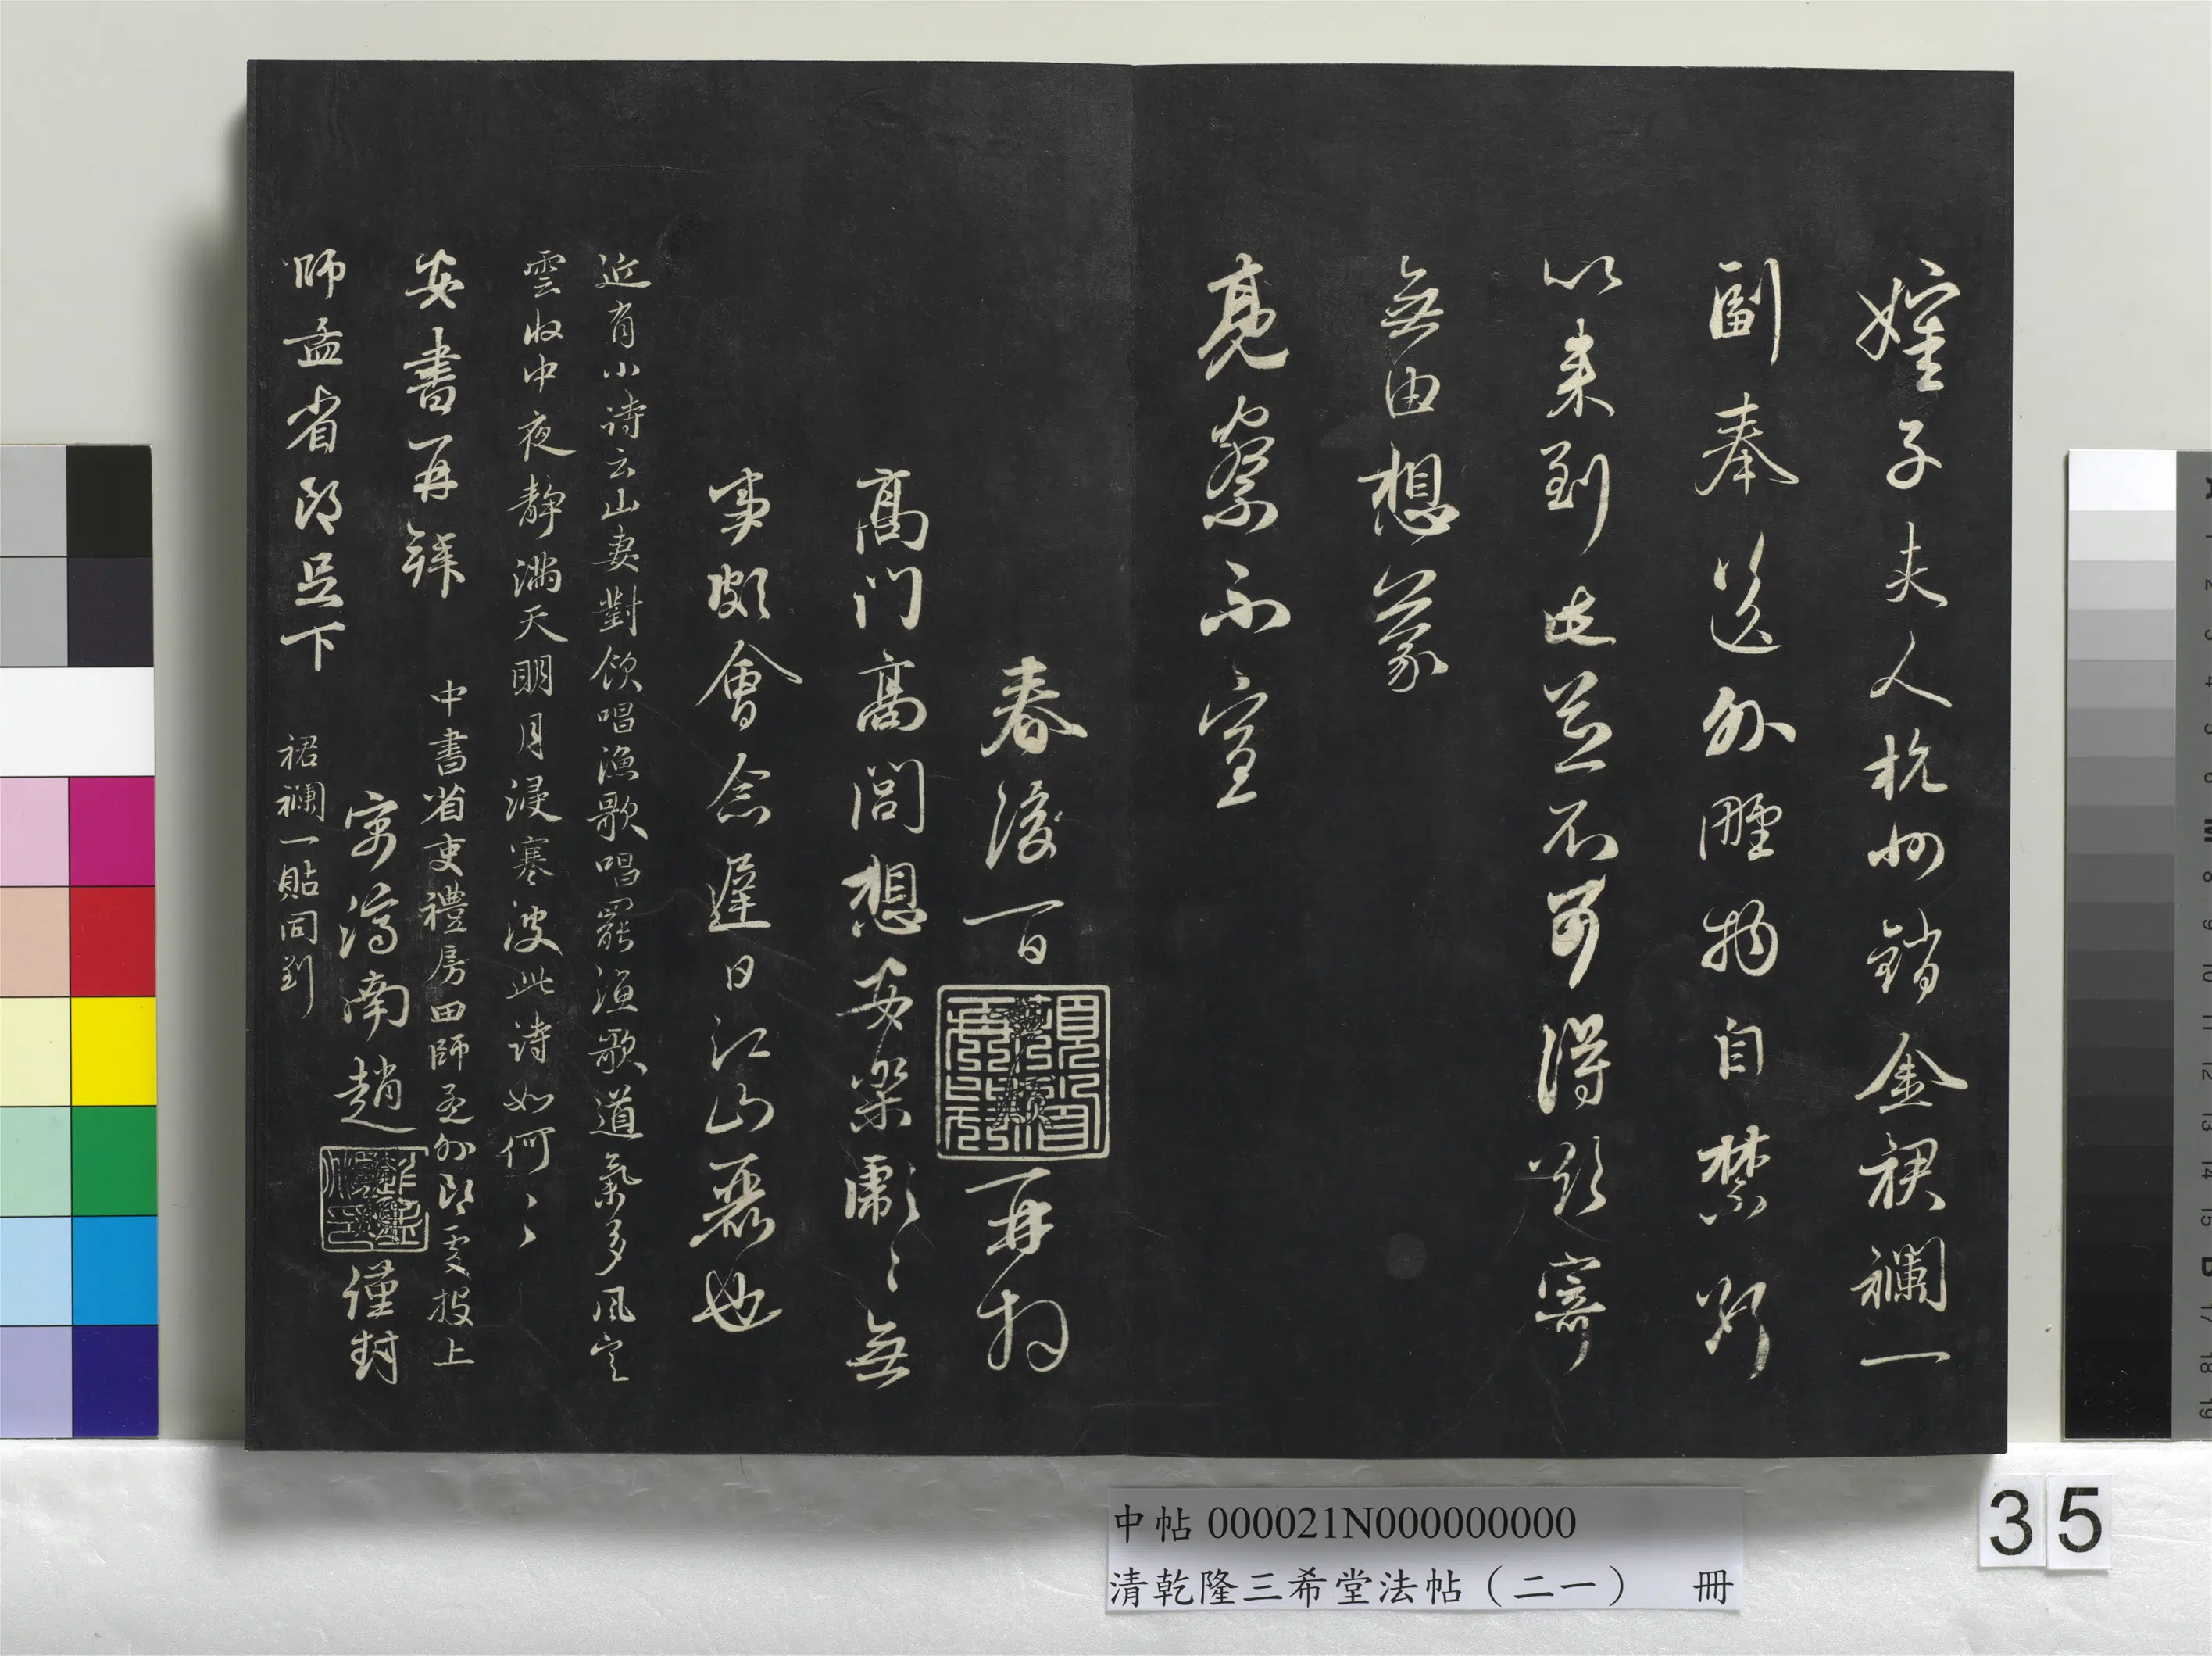 嬸子夫人杭州銷金裙襴一
副奉送外曆物自禁断
以来到此並不可得欲寄
無由想蒙
亮察不宣
春後一日
再拜
高门高閭想安樂勝〻無
事頗會念遅日江山麗也
近有小诗云山妻對飲唱漁歌唱罷漁歌道氣多風定
雲收中夜静满天明月浸寒波此诗如何〻〻
安書再拜 中書省吏禮房田師孟外郎處投上
寓濟南趙
謹封
師孟省郎足下 裙襴一貼同到
中帖 000021N000000000
清乾隆三希堂法帖（二一） 冊
35